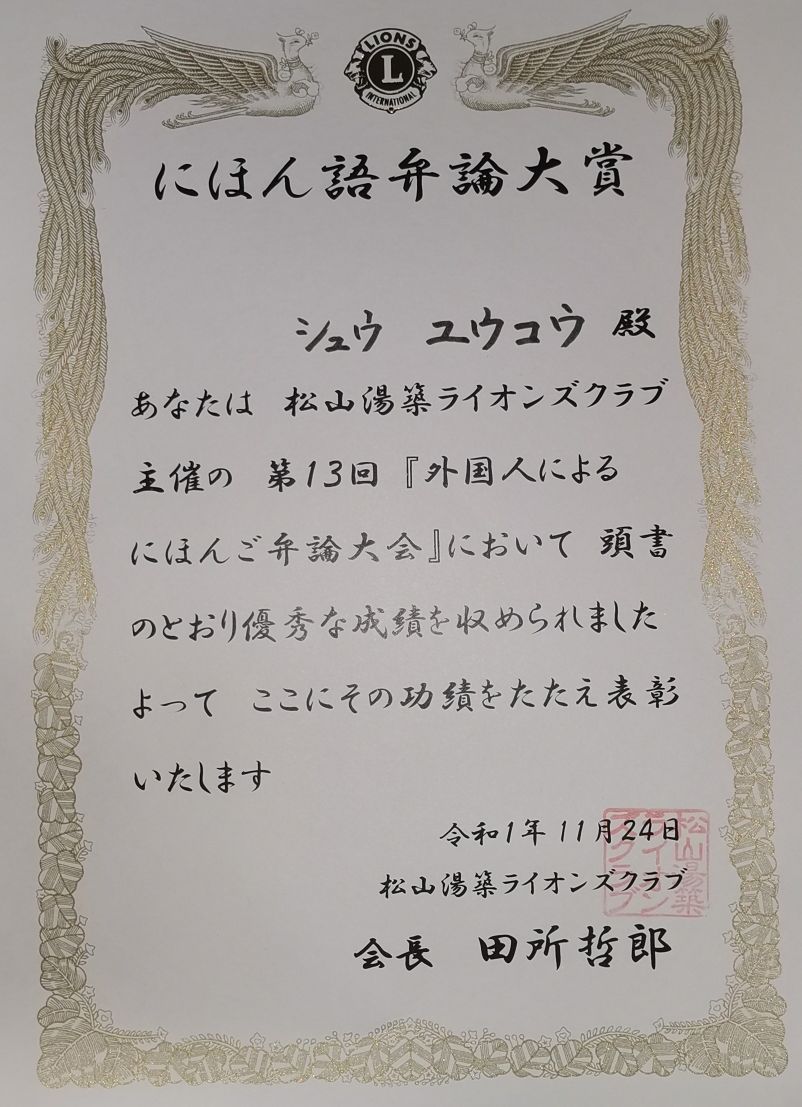 LIONS
L
INTERNATIONAL
にほん語弁論大賞
シュウ ユウコウ 殿
あなたは 松山湯築ライオンズクラブ
主催の 第13回『外国人による
にほんご弁論大会』において 頭書
のとおり優秀な成績を収められました
よって ここにその功績をたたえ表彰
いたします
令和1年 11月24日
松山湯築ライオンズクラブ
会長 田所哲郎
松山湯築
ライオンズ
クラブ